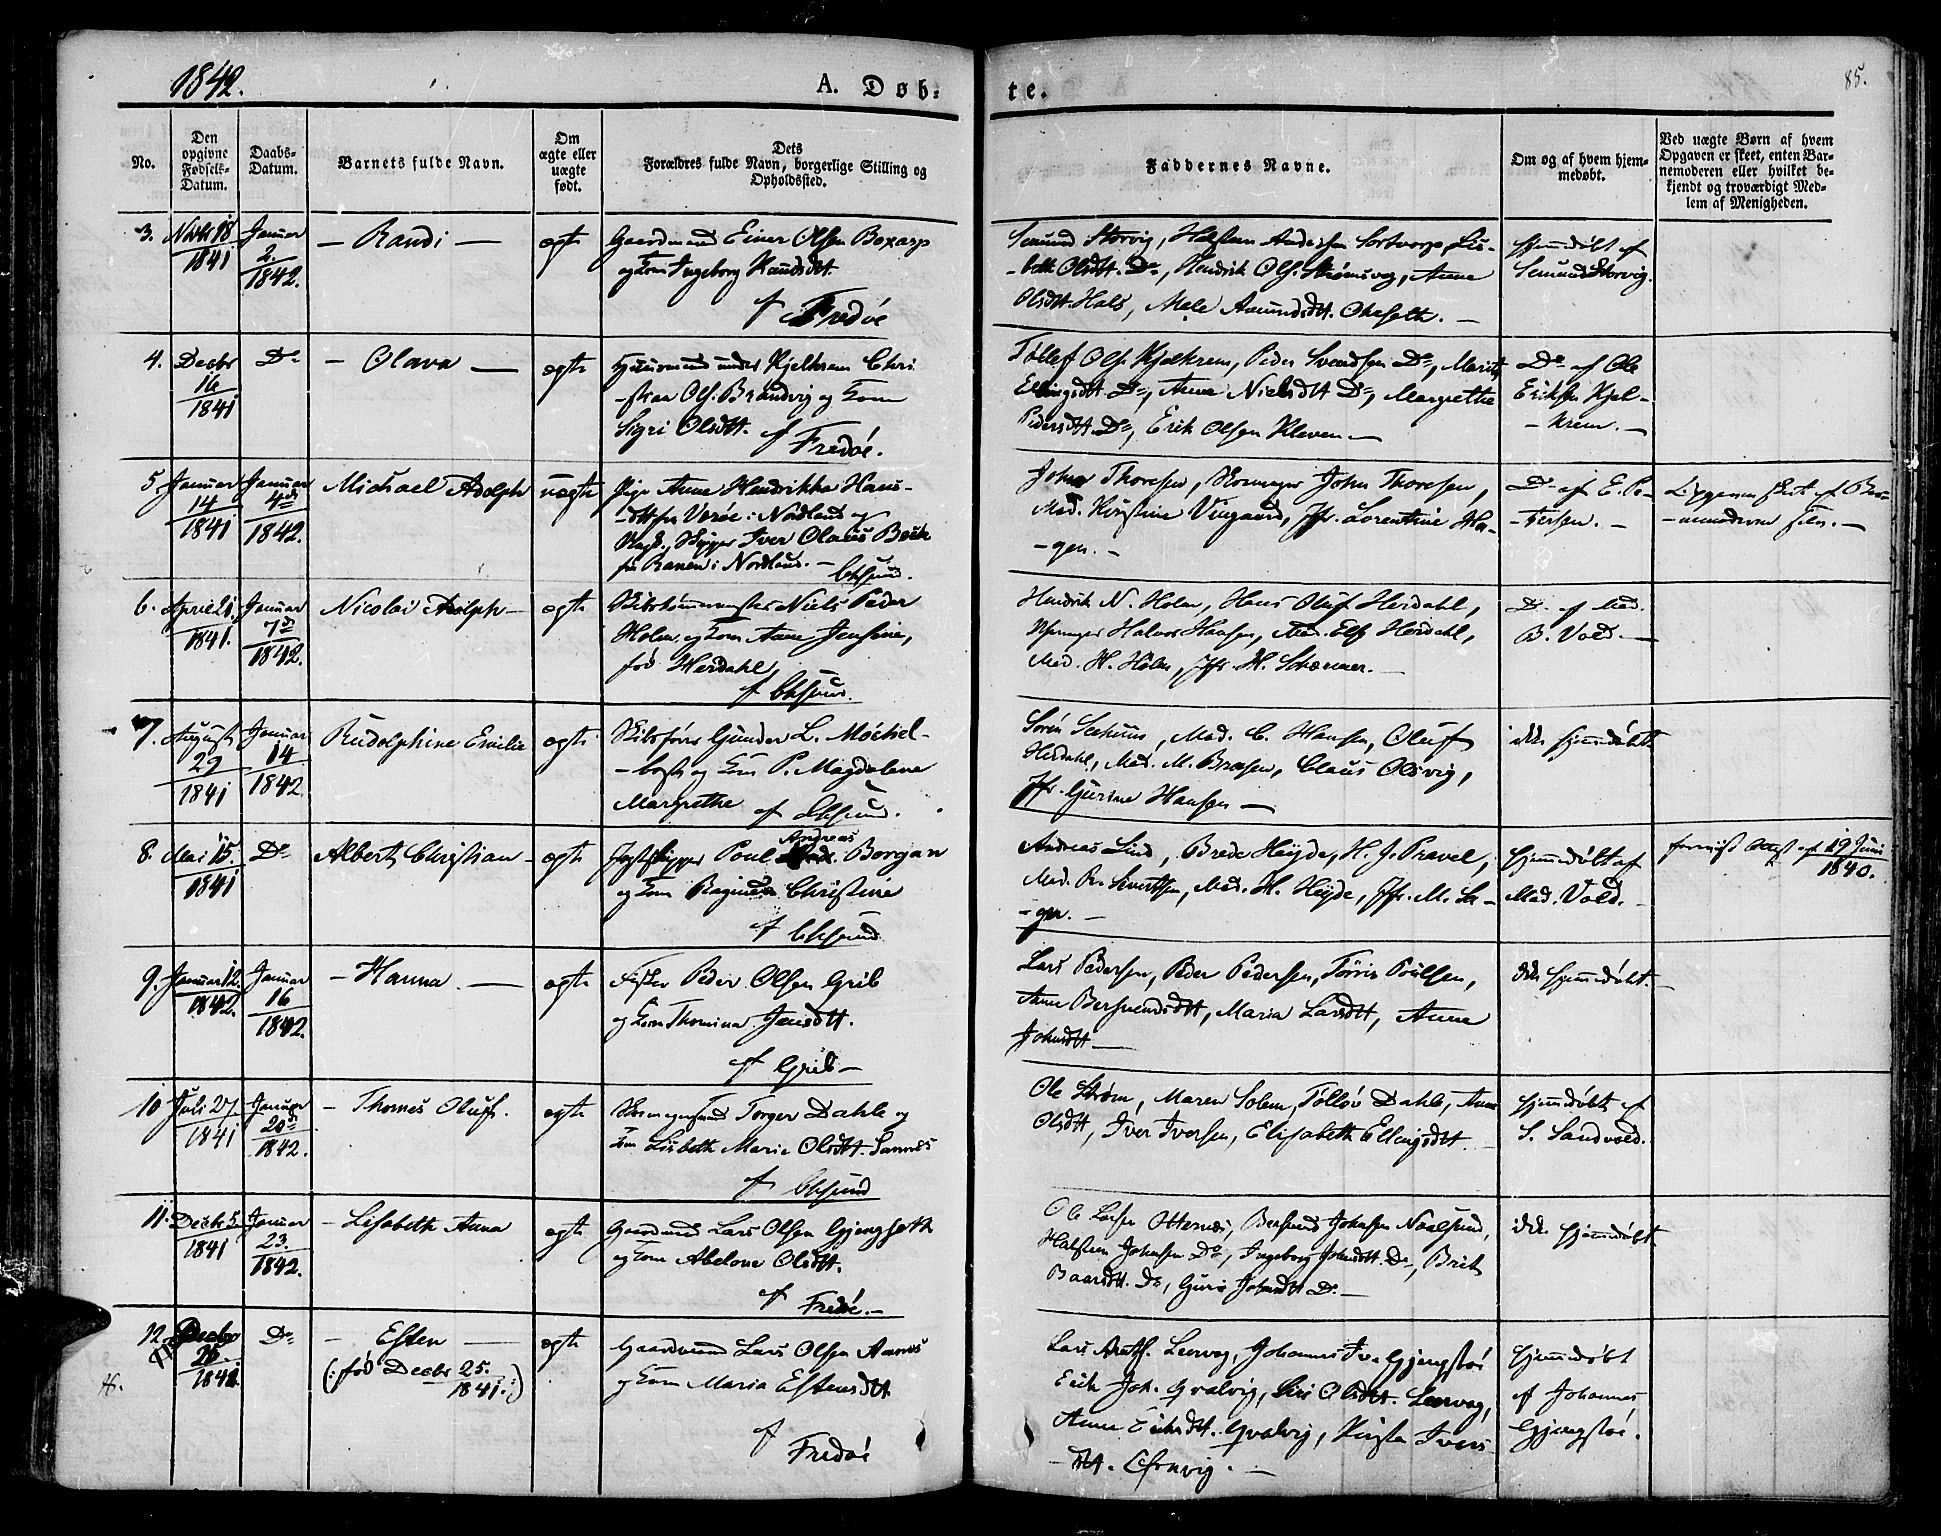 1842.
A. Døb-
te.
85.
No.
Den
opgivne
Fødsels-
Datum.
Daabs-
Datum.
Barnets fulde Navn.
Om
ægte eller
uægte
født.
Dets
Forældres fulde Navn, borgerlige Stilling og
Opholdssted.
Faddernes Navne.
Om og af hvem hjem-
medøbt.
Ved uægte Børn af hvem
Opgaven er skeet, enten Bar-
nemoderen eller hvilket be-
kjendt og troværdigt Med-
lem af Menigheden.
3.
Novbr 18
1841
Januar
2.
1842.
— Randi —
ægte
Gaardmand Einer Olsen
og Kone Ingeborg Knudsdtt.
af Fredøe
Halsteen Andersen
Olsdtt. Do, Hendrik Ols. Strømsvog, Anne
Olsdtt Hals, Amundsdtt.
hjemmedøbt af
Storvig.
4.
Decbr
16
1841
Do
— Olava —
ægte
Huusmand under Kjelkrem Chri-
stian Ols. Brandvig og Kone
Sigri Olsdtt. af Fredøe.
Ols. Kjelkrem, Peder Svendsen Do, Marit
Ellingsdtt Do, Anne Nielsdtt Do, Margrethe
Pedersdtt. Do, Erik Olsen Kleven. —
Do af Ole
Eriksen Kjel-
krem. —
5.
Januar
14
1841
Januar
4de
1842.
Michael Adolph
uægte
Pige Anne Hendrikka Hans-
dtt fra Værøe i Nordland og
Skipper Iver Olaus Beck
fra Ranen i Nordland. —
Chrsund.
John Thoresen, John Thoresen,
Mad. Kirstine Jfr. Lorentine Ha-
gen. —
Do af E. Pe-
tersen. —
Opgaven skeet af Bar-
nemoderen selv. —
6.
April 21
1841.
Januar
7de
1842.
Nicolai Adolph —
ægte
Skibstømmermester Niels Peder
Holm og Kone Anne Jensine,
fød Herdahl,
af Chrsund.
Hendrik N. Holm, Hans Oluf Herdahl,
Halvor Hansen, Mad. Herdahl,
Mad. H. Holm, Jfr. H.
Do. af Mad.
B. Vold. —
7.
August
29
1841
Januar
14
1842
Rudolphine Emilie
ægte
Skibsfører Gunder L. Møckel-
bost og Kone P. Magdalene
Margrethe af Chrsund.
Søren Mad. C. Hansen, Oluf
Herdahl, Mad. M. Claus Olsvig,
Jfr. Gurine Hansen —
ikke hjemmedøbt
8.
Mai 15.
1841
Do
Albert Christian —
ægte
Jagtskipper Poul Andreas Borgan
og Kone Christine
af Chrsund
Andreas Lind, Brede Heyde, H. J.
Mad. Mad. H. Heyde, Jfr. M.
gen. —
hjemmedøbt af
Mad. Vold. —
af 19 Juni
1840.
9.
Januar 12.
1842.
Januar
16
1842.
— Hanna. —
ægte
Fisker Peder Olsen Grib
og Kone Thomina Jensdtt.
af Grib —
Lars Pedersen, Peder Pedersen, Poulsen,
Anne Maria Larsdtt, Anne
Johnsdtt —
ikke hjemmedøbt. —
10
Juli 27
1841
Januar
20de
1842.
— Thomas Oluf.
ægte
Torger Dahle og
Kone Lisbeth Marie Olsdtt.
af Chrsund
Ole Strøm, Maren Solem, Dahle, Anne
Olsdtt, Iver Iversen, Elisabeth Ellingsdtt. —
hjemmedøbt af
S. Sandvold.
11.
Decbr 5.
1841
Januar
23.
1842.
— Lisabeth Anna
ægte
Gaardmand Lars Olsen
og Kone Abelone Olsdtt.
af Fredøe. —
Ole Larsen Johnsen
Halsten Johnsen Do, Ingeborg Johnsdtt. Do, Brit
Baarsdtt. Do, Guri Johnsdtt Do. —
ikke hjemmedøbt.
12.
Decbr
25.
1841
Do
— Esten —
(: fød Decbr 25.
1841. :)
ægte
Gaardmand Lars Olsen
og Kone Maria Estensdtt
af
Fredøe
Lars Leervog, Johannes
Erik Joh. Qvalvig, Siri Olsdtt. Leervog,
Anne Eriksdtt. Qvalvig, Kirsten Ivers-
dtt. —
hjemmedøbt
af Johannes